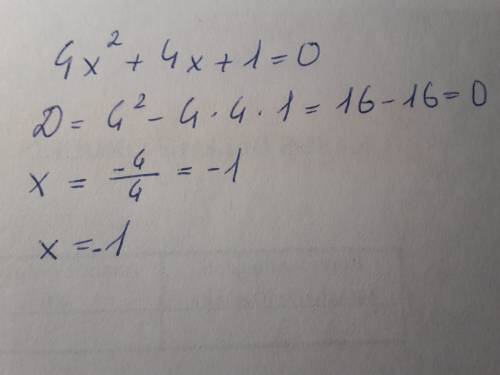 4x² + 4x + 1 = 0
D = 4² - 4 · 4 · 1 = 16 - 16 = 0
x = -4/4 = -1
x = -1